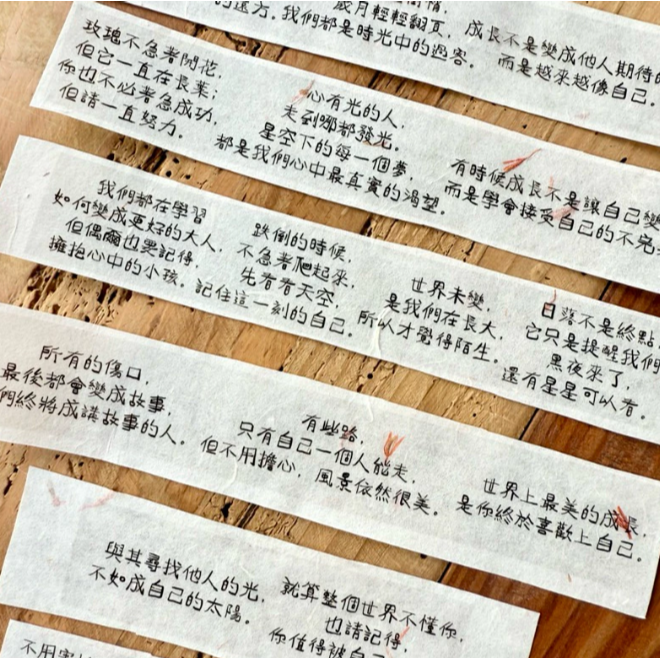 的遠方。我們都是時光中的過客。
歲月輕輕翻頁，
成長不是變成他人期待的
而是越來越像自己。
玫瑰不急著開花，
但它一直在長葉；
你也不必著急成功，
但請一直努力。
心有光的人，
走到哪都發光。
星空下的每一個夢，
都是我們心中最真實的渴望。
有時候成長不是讓自己變
而是學會接受自己的不完美
我們都在學習
如何變成更好的大人，
但偶爾也要記得，
擁抱心中的小孩。
跌倒的時候，
不急著爬起來，
先看看天空，
記住這一刻的自己。
世界未變，
是我們在長大，
所以才覺得陌生。
日落不是終點，
它只是提醒我們
黑夜來了，
還有星星可以看。
所有的傷口，
最後都會變成故事，
們終將成講故事的人。
有些路，
只有自己一個人能走，
但不用擔心，風景依然很美。
世界上最美的成長，
是你終於喜歡上自己。
與其尋找他人的光，
不如成自己的太陽。
就算整個世界不懂你，
也請記得，
你值得被自
不用害